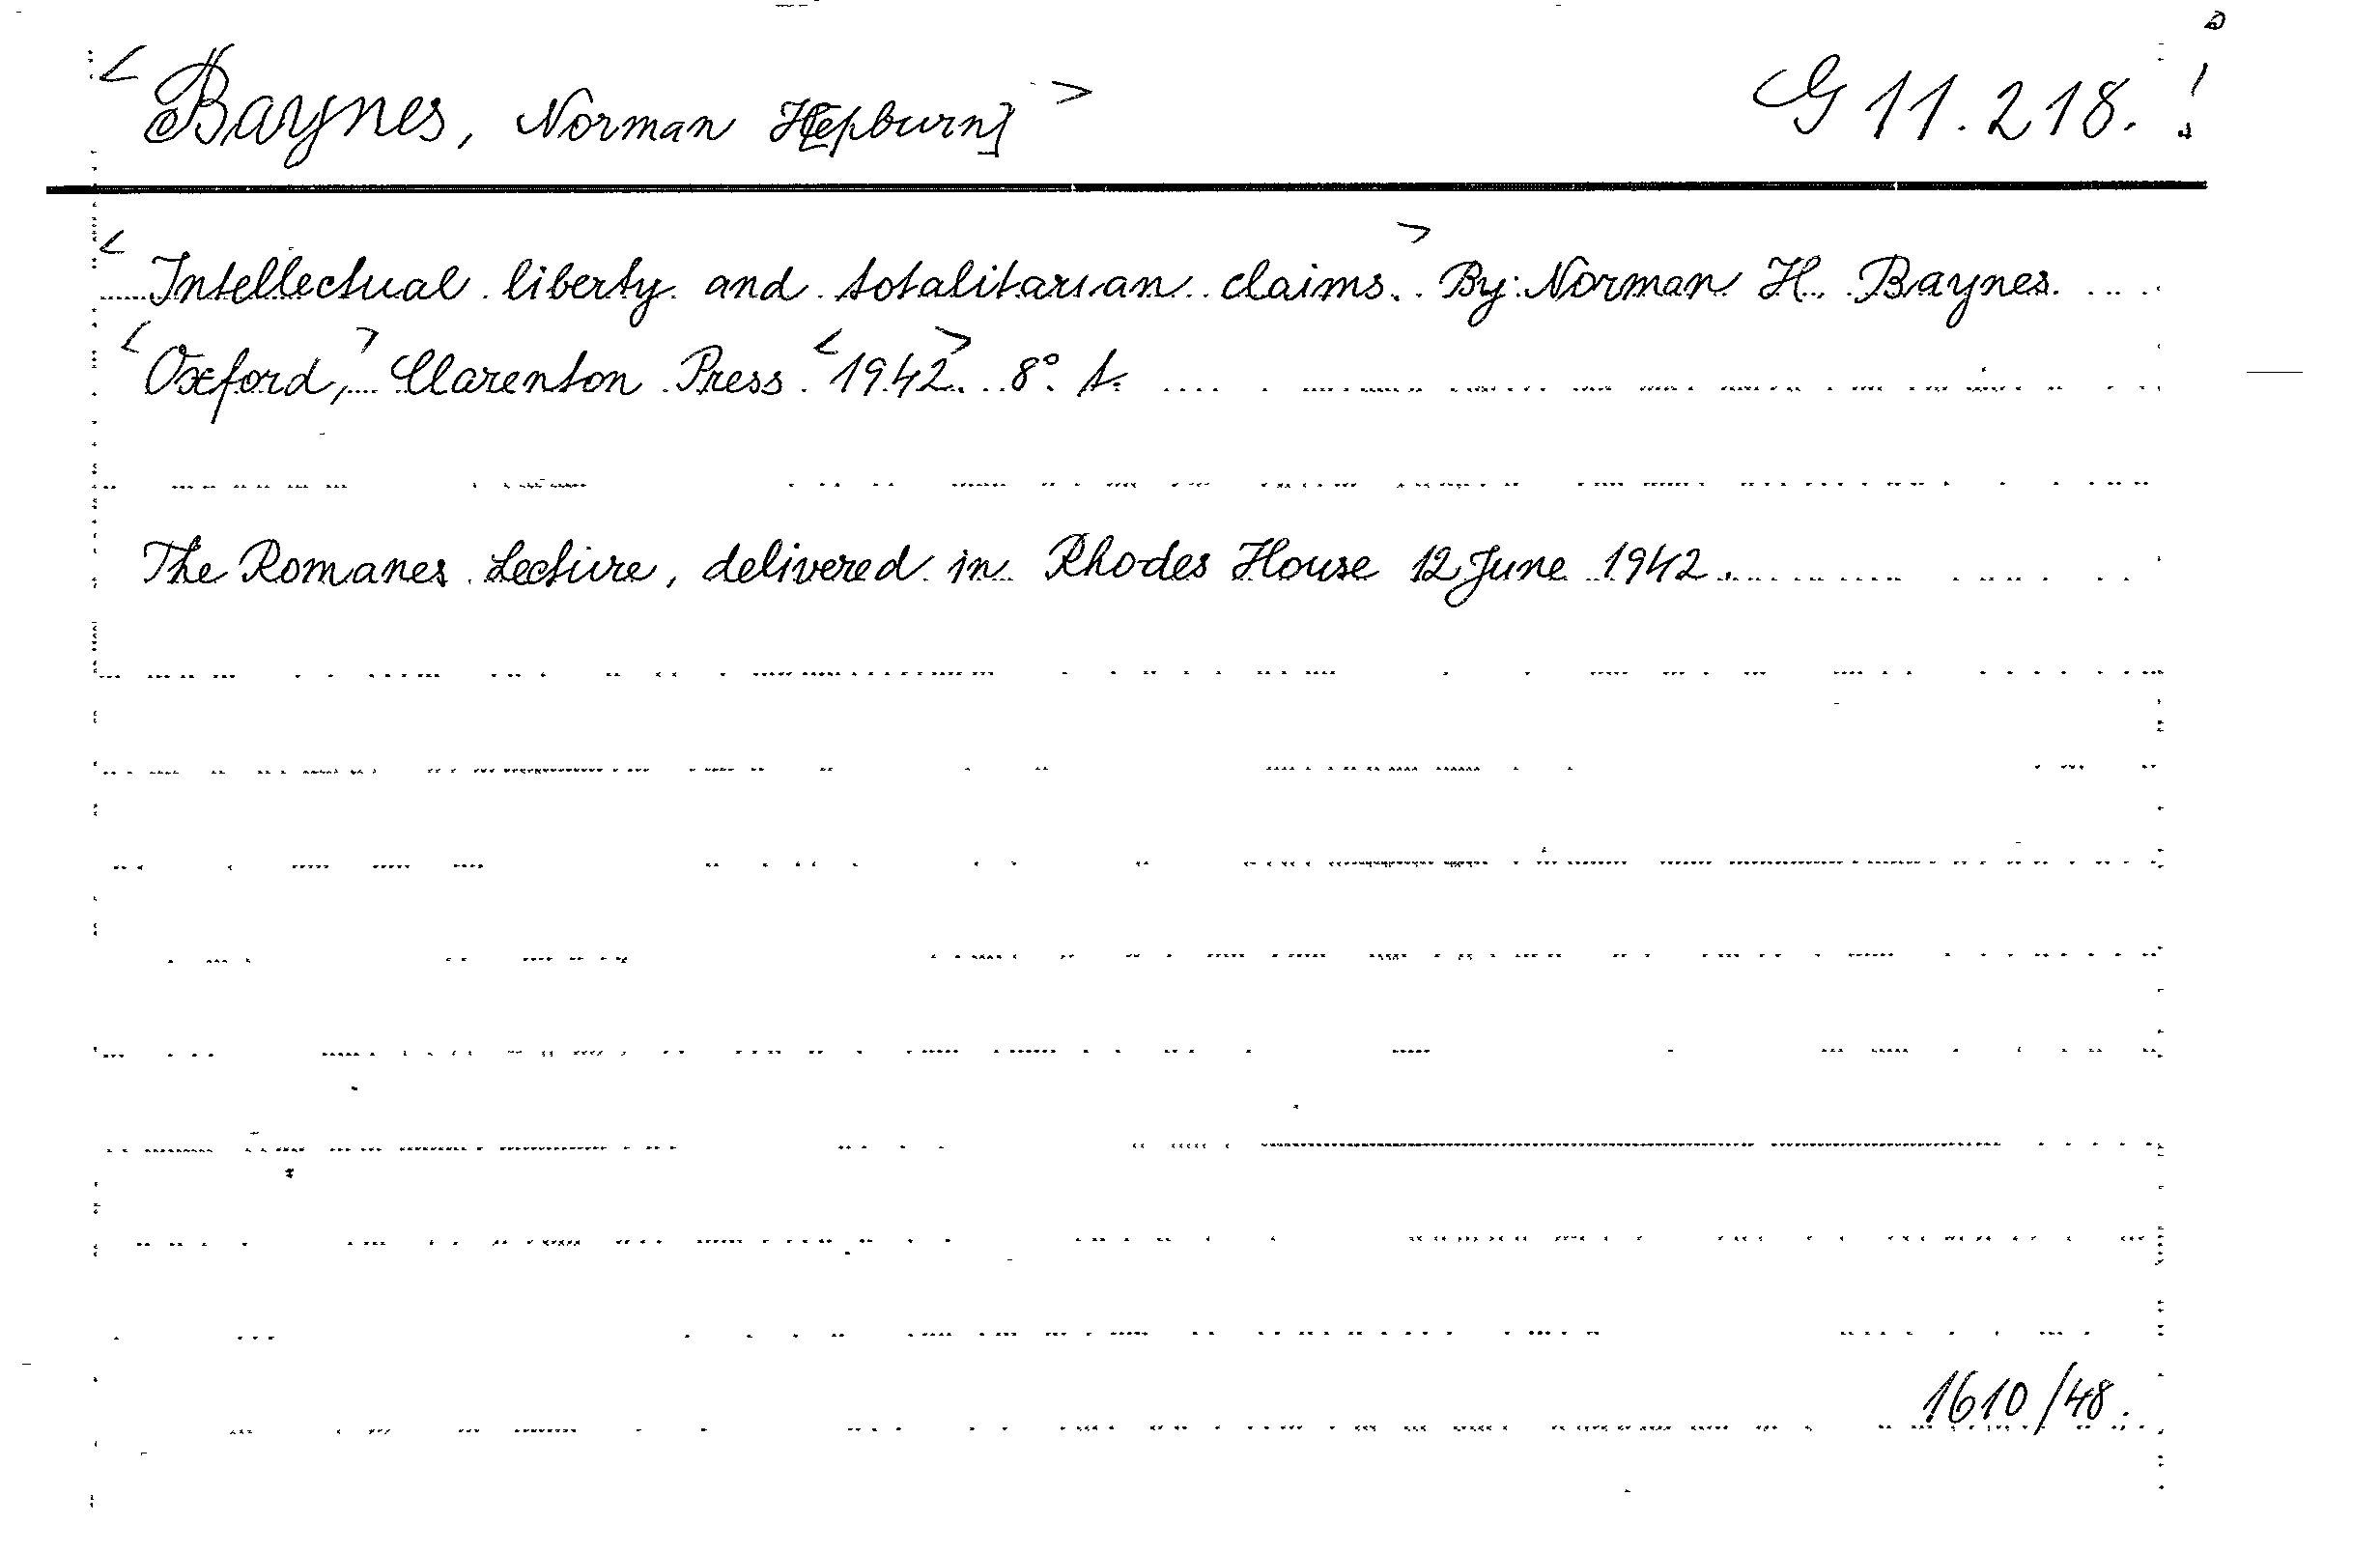 <Baynes, Norman H[epburn]> G 11.218.!
<Intellectual liberty and totalitarian claims.> By Norman H. Baynes.
<Oxford,> Clarenton Press <1942>. 8°.
The Romanes Lecture, delivered in Rhodes House 12 June 1942.
1610/48.